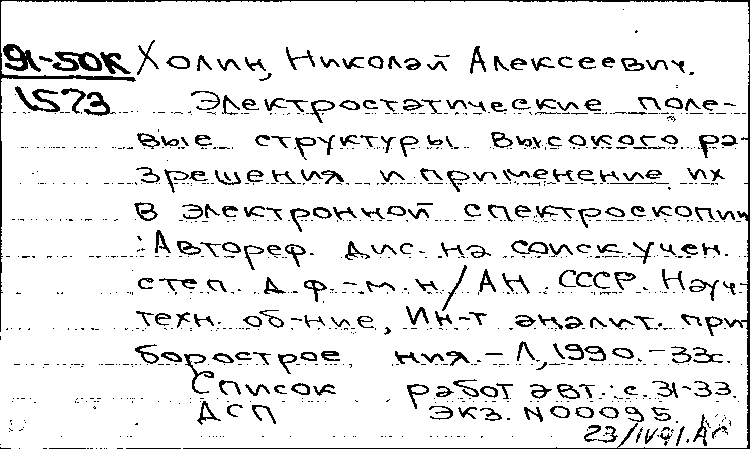 91-50К Холин, Николай Алексеевич.
1573 Электростатические поле-
вые структуры высокого ра-
зрешения и применение их
в электронной спектроскопии
: Автореф. дис. на соиск. учен.
степ. д. ф.-м. н / АН СССР. Науч-
техн. об-ние, Ин-т аналит. при
борострое ния. - Л, 1990. - 33с.
Список работ авт.: с. 31-33.
ДСП экз. N00095
23/IV91.